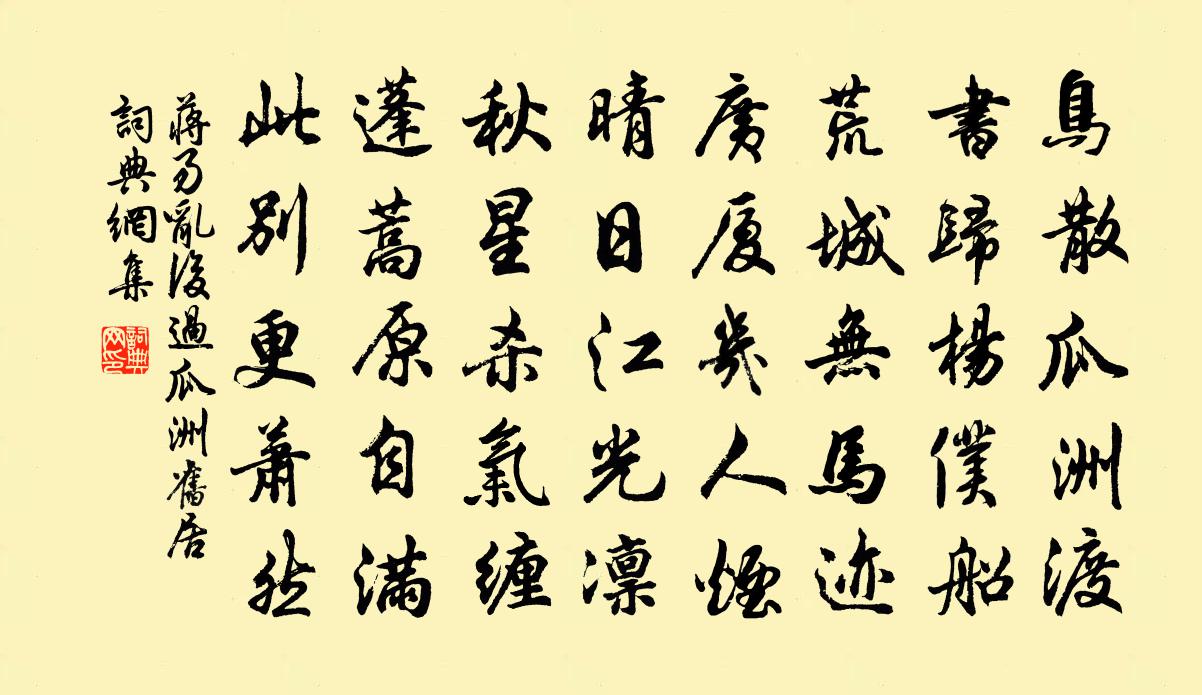 鳥散瓜洲渡
書歸楊僕船
荒城無馬迹
廣厦幾人煙
晴日江光凛
秋星杀氣纏
蓬蒿原自滿
此別更蕭然
蔣易亂後過瓜洲舊居
詞典網集
詞典网印